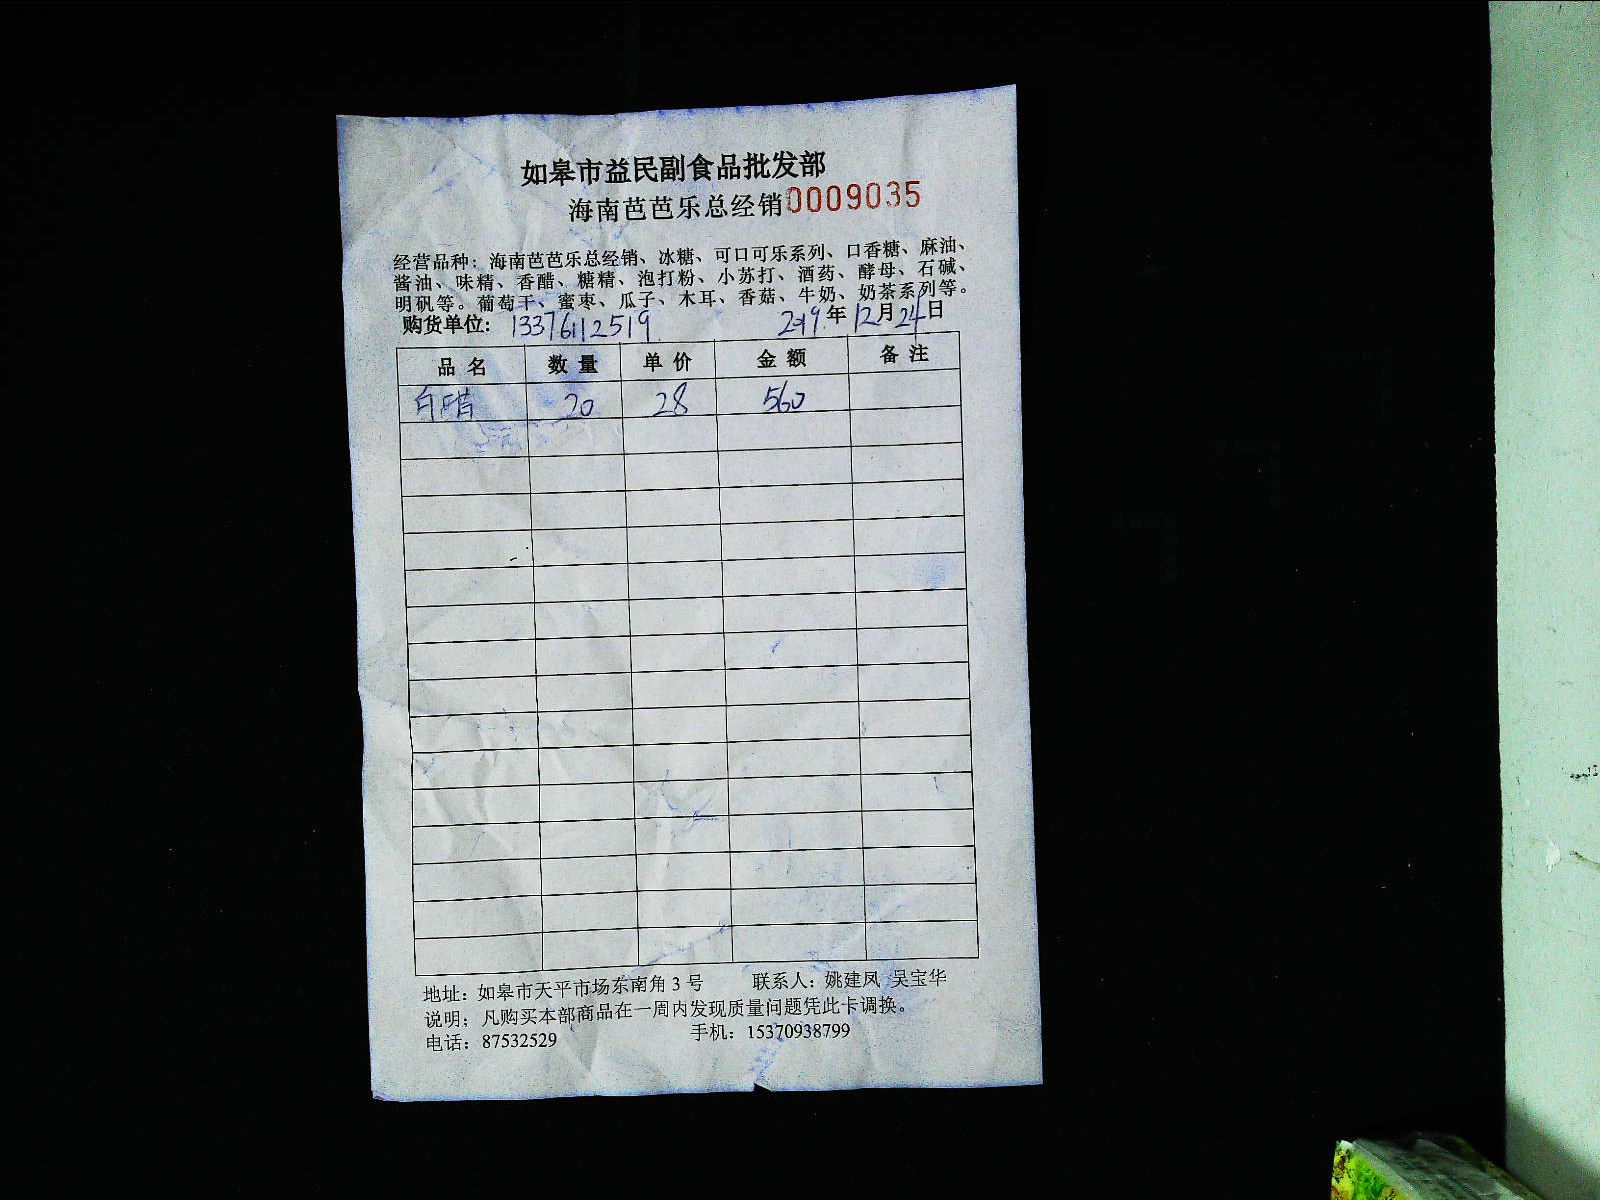 如皋市益民副食品批发部
海南芭芭乐总经销0009035
经营品种：海南芭芭乐总经销、冰糖、可口可乐系列、口香糖、麻油、
酱油、味精、香醋、糖精、泡打粉、小苏打、酒药、酵母、石碱、
明矾等。葡萄干、蜜枣、瓜子、木耳、香菇、牛奶、奶茶系列等。
购货单位：13376112519 2019.年12月24日
品名 数量 单价 金额 备注
白醋 20 28 560
地址：如皋市天平市场东南角3号 联系人：姚建凤 吴宝华
说明；凡购买本部商品在一周内发现质量问题凭此卡调换。
电话：87532529 手机：15370938799